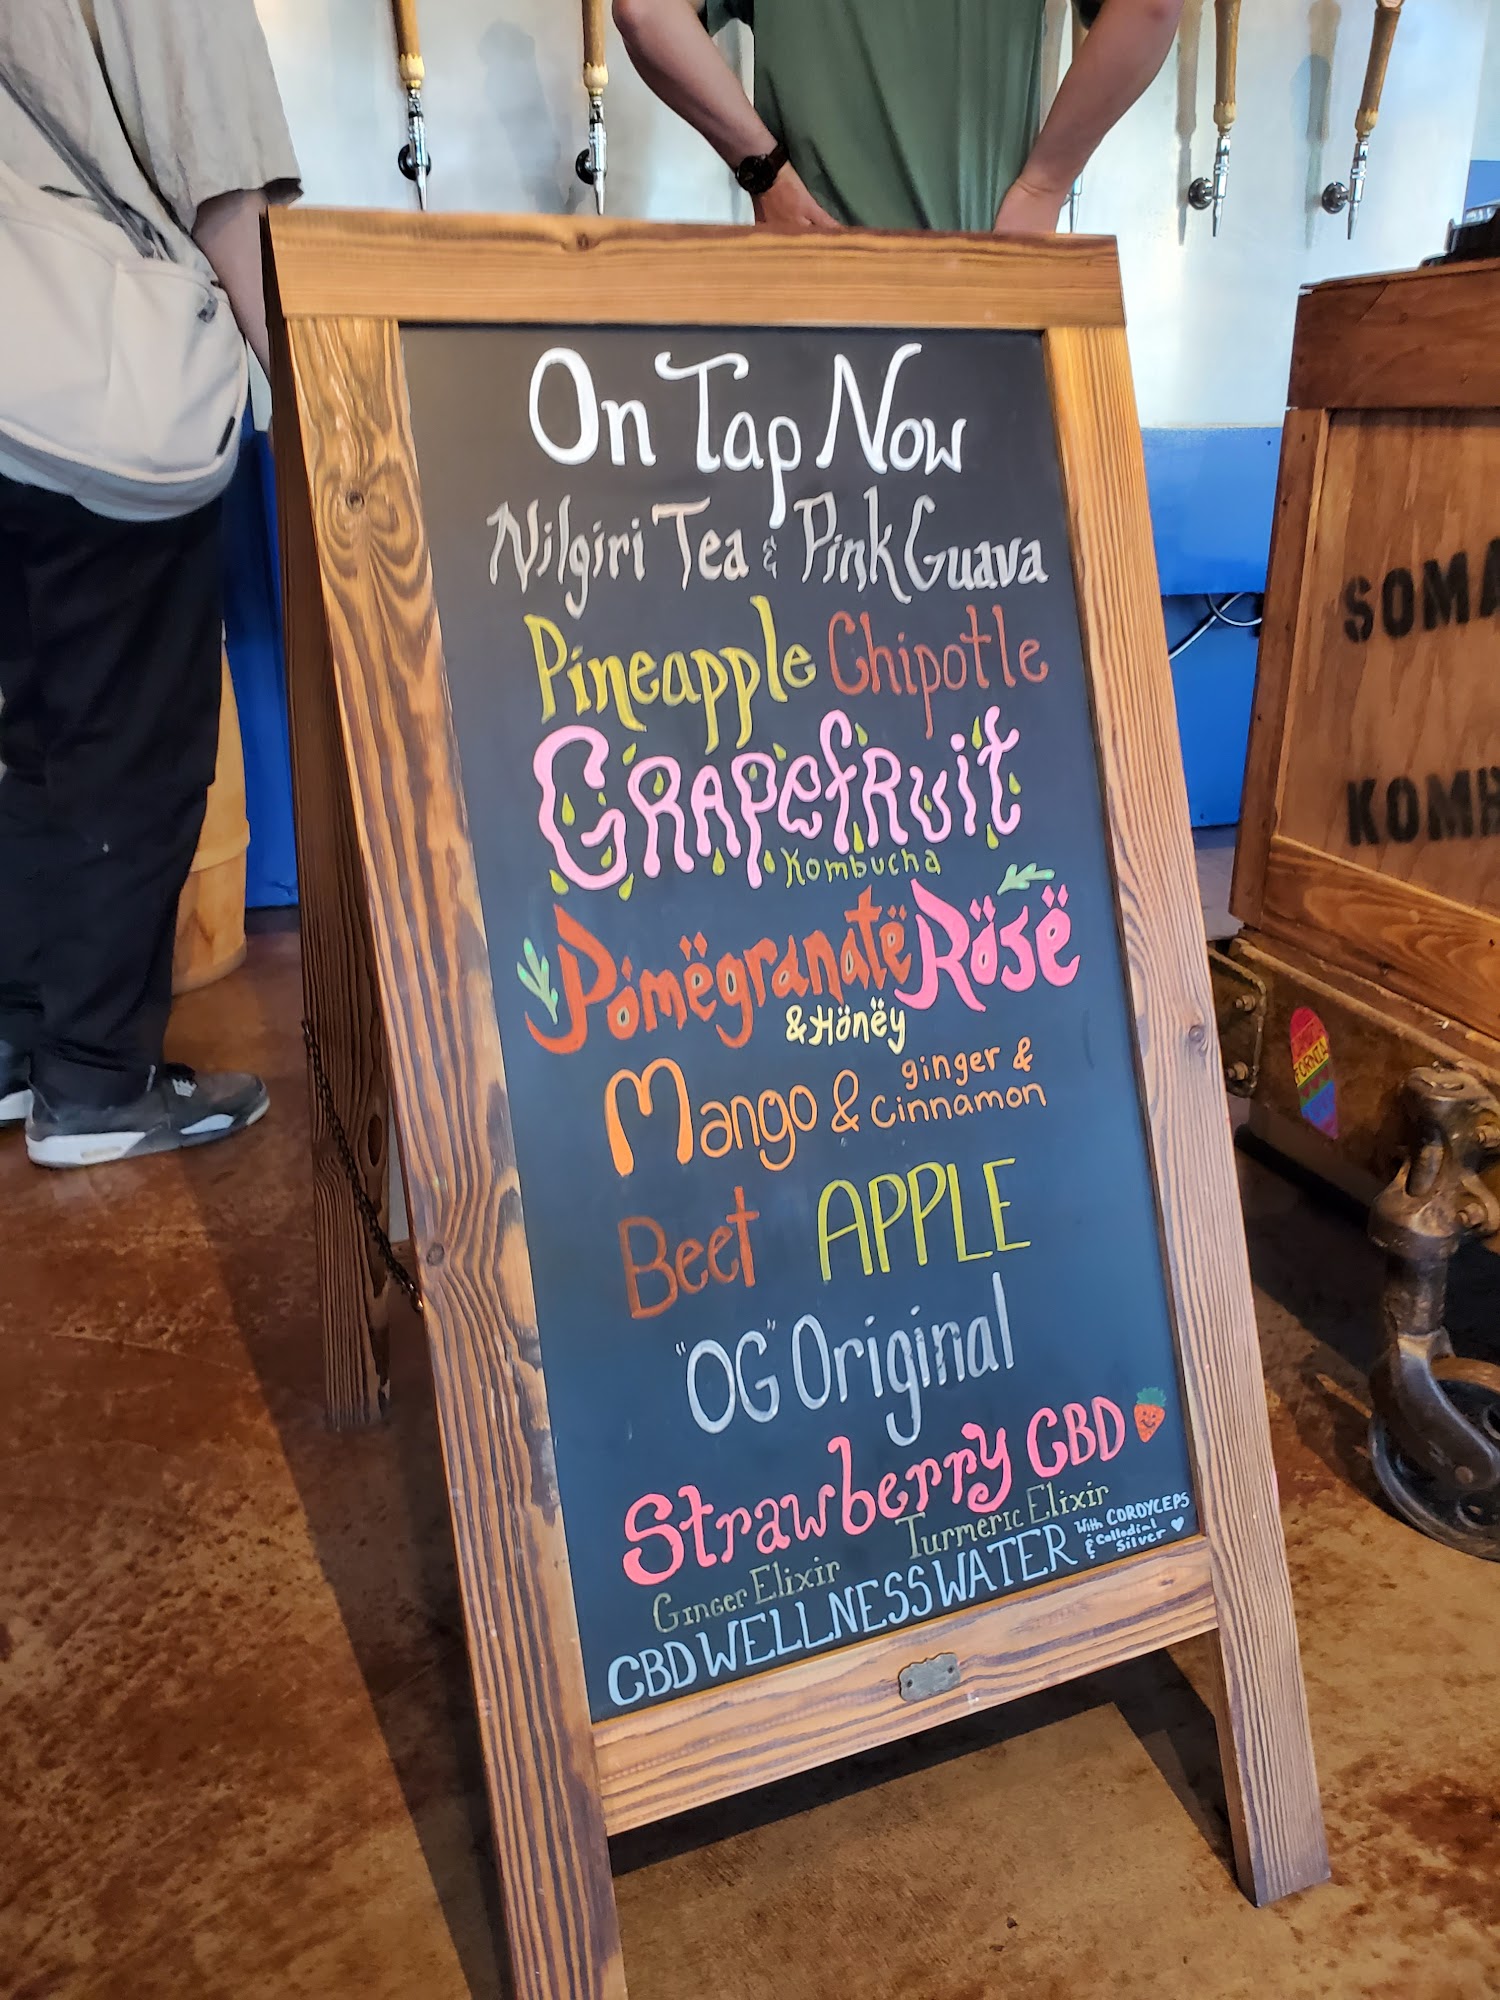 On Tap Now
Nilgiri Tea & Pink Guava
Pineapple Chipotle
GRAPefRuit
Kombucha
Pömëgranatë Rösë
& Hönëy
Mango & ginger & cinnamon
Beet APPLE
"OG" Original
Strawberry CBD
Turmeric Elixir
Ginger Elixir
CBD WELLNESS WATER With CORDYCEPS & Collodial Silver
SOMA
KOMB
FORNIA